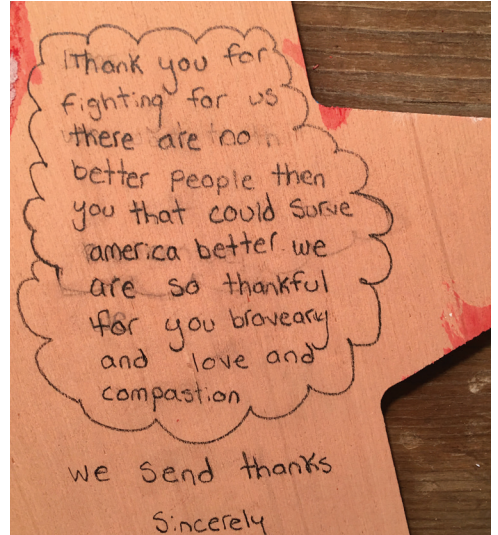 Thank you for
fighting for us
there are no
better people then
you that could Surve
america better. we
are so thankful
for you braveary
and love and
compastion
we send thanks
Sincerely